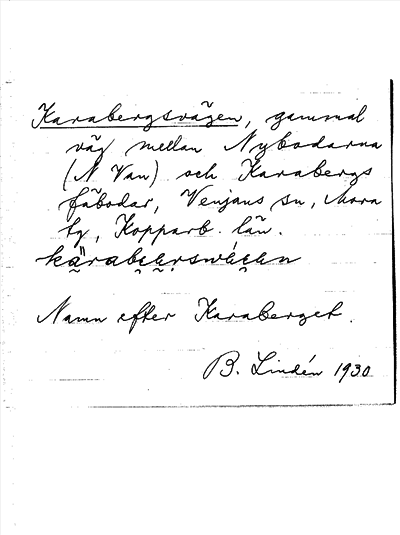 Karabergsvägen, gammal
väg mellan Nybodarna
(N Van) och Karabergs
fäbodar, Venjans sn, Mora
tg, Kopparb. län.
Namn efter Karaberget.
B. Lindén 1930